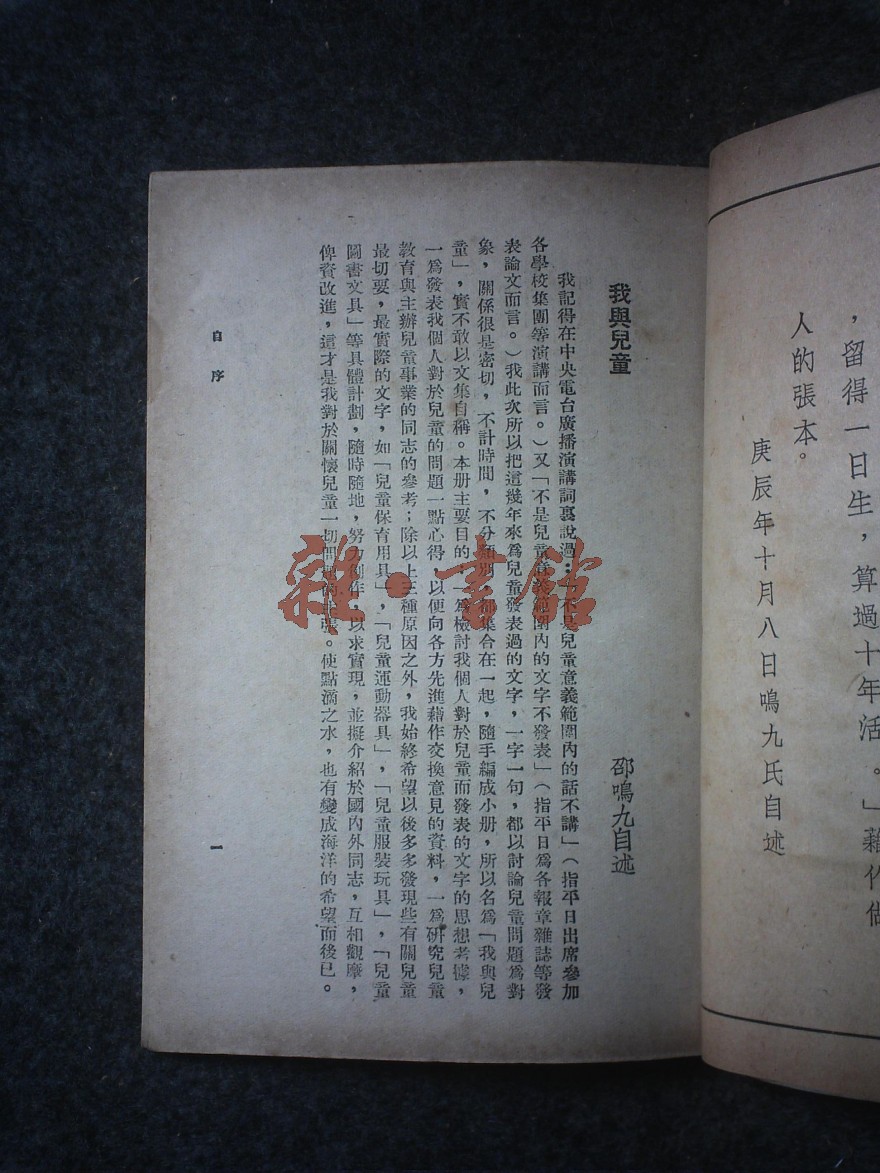 ，留得一日生，算過十年活。」藉作做
人的張本。
庚辰年十月八日鳴九氏自述
我與兒童
邵鳴九自述
我記得在中央電台廣播演講詞裏說過：「不是兒童意義範圍內的話不講」（指平日出席參加
各學校集團等演講而言。）又「不是兒童意義範圍內的文字不發表」（指平日爲各報章雜誌等發
表論文而言。）我此次所以把這幾年來爲兒童發表過的文字，一字一句，都以討論兒童問題爲對
象，關係很是密切，不計時間，不分類別，都集合在一起，隨手編成小册，所以名爲「我與兒
童」，實不敢以文集自稱。本册主要目的：一爲檢討我個人對於兒童而發表的文字的思想考據，
一爲發表我個人對於兒童的問題一點心得，以便向各方先進藉作交換意見的資料，一爲研究兒童
教育與主辦兒童事業的同志的參考；除以上三種原因之外，我始終希望以後多多發現些有關兒童
最切要，最實際的文字，如「兒童保育用具」，「兒童運動器具」，「兒童服裝玩具」，「兒童
圖書文具」等具體計劃，隨時隨地，努力創作，以求實現，並擬介紹於國內外同志，互相觀摩，
俾資改進，這才是我對於關懷兒童一切問題的主張。使點滴之水，也有變成海洋的希望而後已。
自序
一
雜·書館